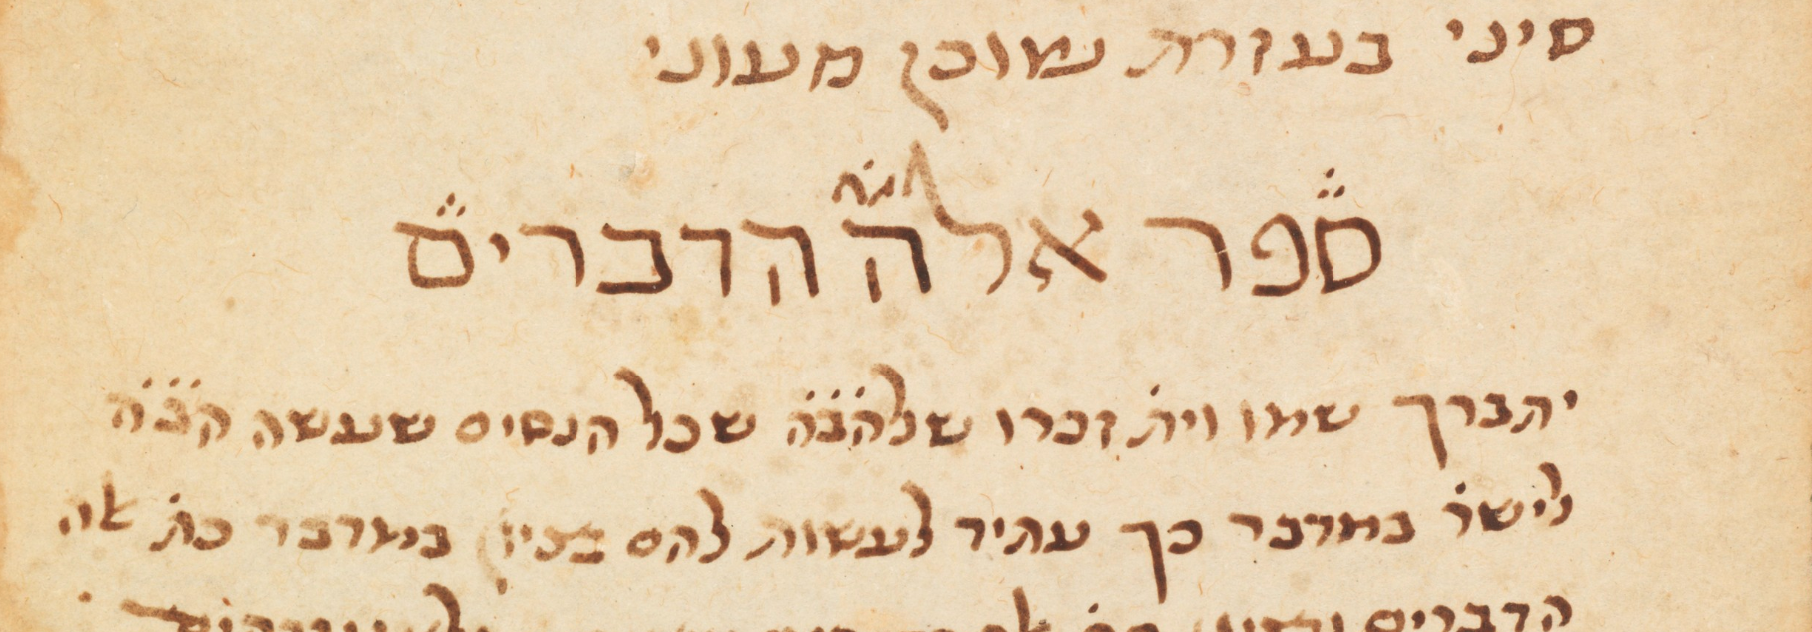 סיני בעזרת שוכן מעוני
ספר אלה הדברים
יתברך שמו וית' זכרו שלהב"ה שכל הנסים שעשה הקב"ה
לישר' במדבר כך עתיד לעשות להם בציון במדבר כת' אלה
הדברים